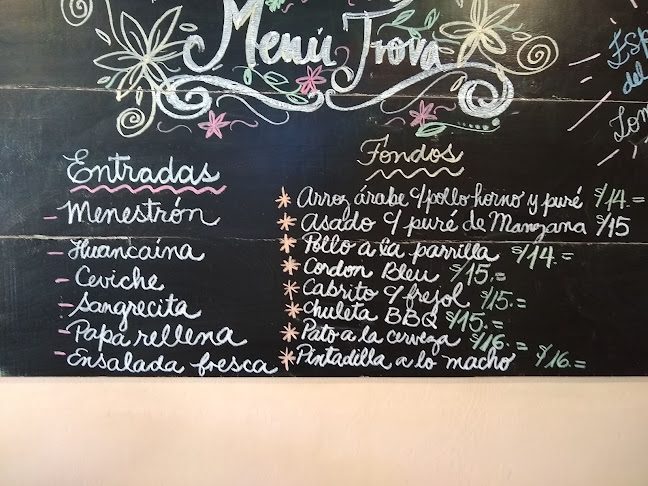 Menú Trova
Esp
del
Lom
Entradas
- Menestrón
- Huancaína
- Ceviche
- Sangrecita
- Papa rellena
- Ensalada fresca
Fondos
* Arroz árabe c/pollo horno y puré S/14.=
* Asado c/ puré de Manzana S/15
* Pollo a la parrilla S/14.=
* Cordon Bleu S/15.=
* Cabrito c/ frejol S/15.=
* Chuleta BBQ S/15.=
* Pato a la cerveza S/16.=
* Pintadilla a lo macho S/16.=